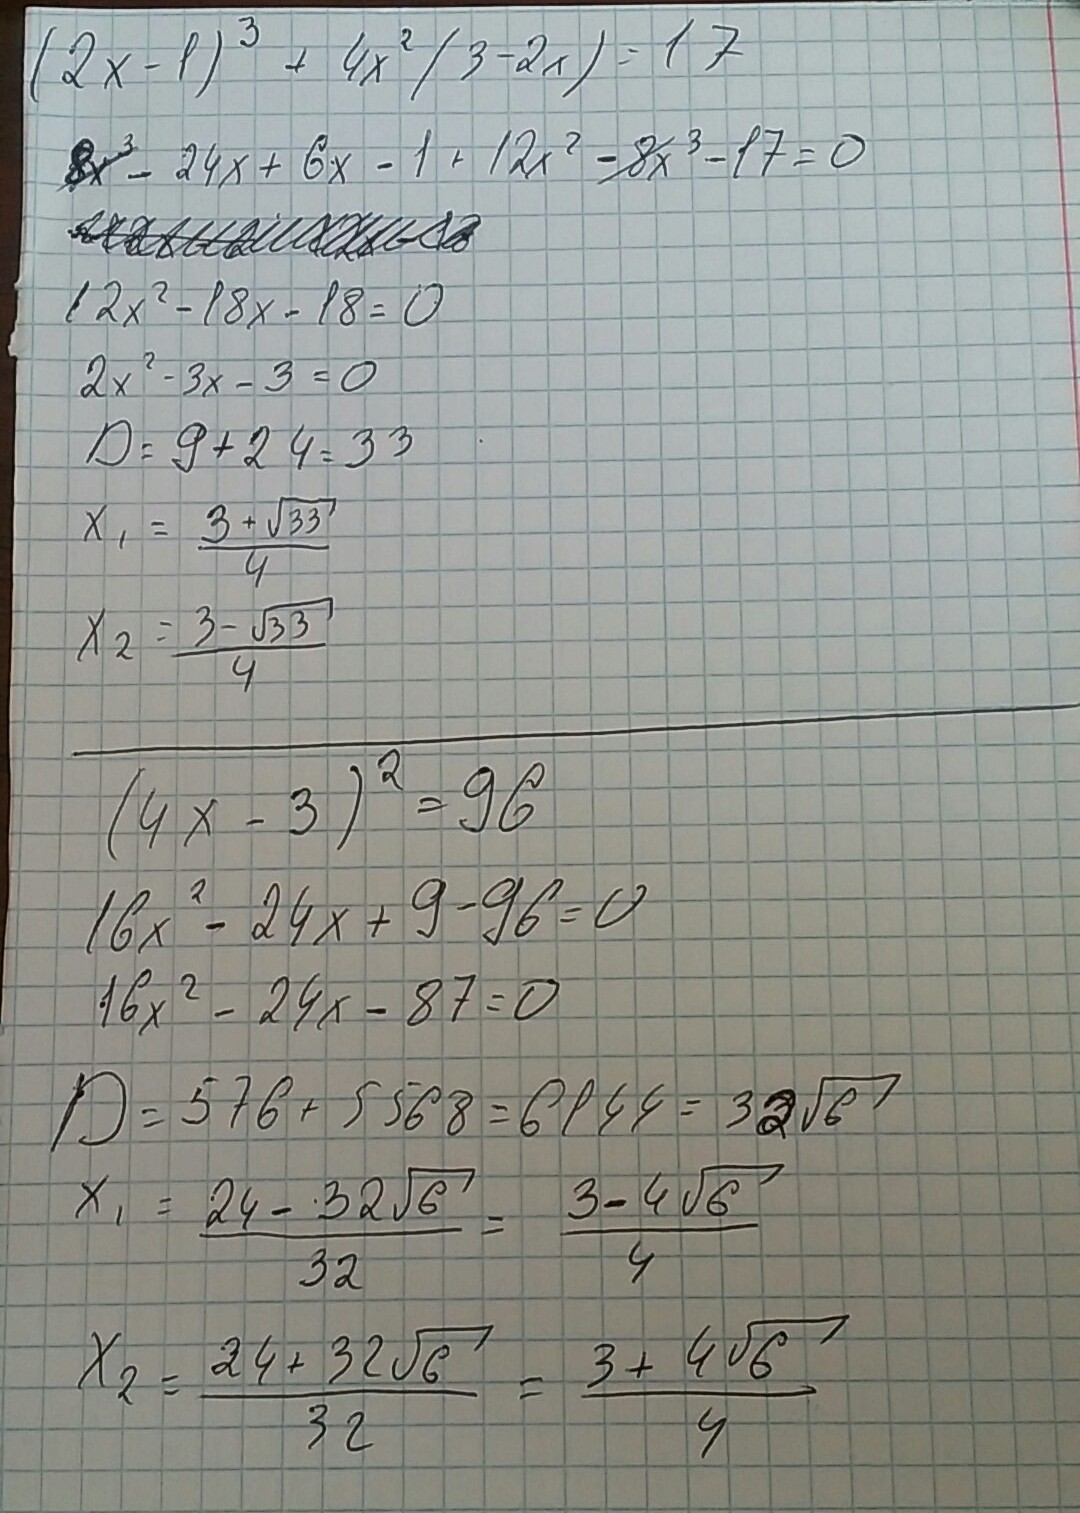 (2x-1)³ + 4x²(3-2x) = 17
8x³ - 24x + 6x - 1 + 12x² - 8x³ - 17 = 0
12x² - 18x - 18 = 0
2x² - 3x - 3 = 0
D = 9 + 24 = 33
x₁ = (3 + √33)/4
x₂ = (3 - √33)/4
(4x - 3)² = 96
16x² - 24x + 9 - 96 = 0
16x² - 24x - 87 = 0
D = 576 + 5568 = 6144 = 32√6
x₁ = (24 - 32√6)/32 = (3 - 4√6)/4
x₂ = (24 + 32√6)/32 = (3 + 4√6)/4